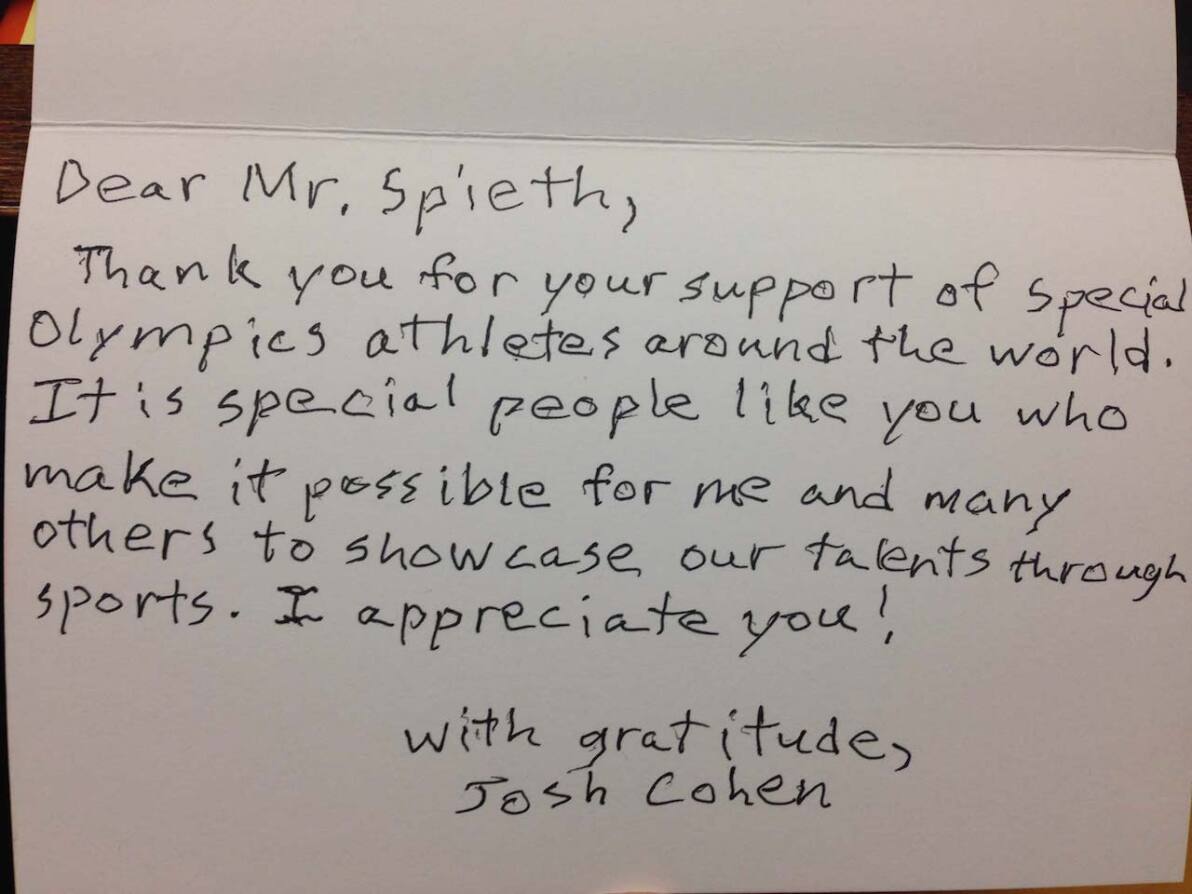 Dear Mr. Spieth,
Thank you for your support of special
Olympics athletes around the world.
It is special people like you who
make it possible for me and many
others to showcase our talents through
sports. I appreciate you!
with gratitude,
Josh Cohen